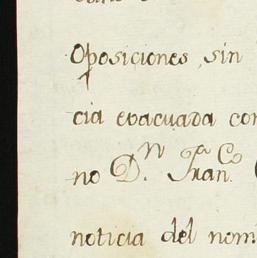 Oposiciones, sin
cia evacuada con
no D.ⁿ Fran.ᶜᵒ
noticia del nom